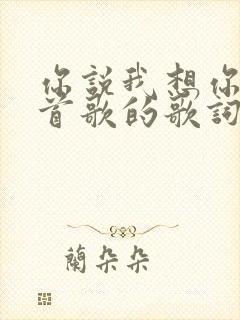 你説我想你
首歌的歌詞
蘭朵朵